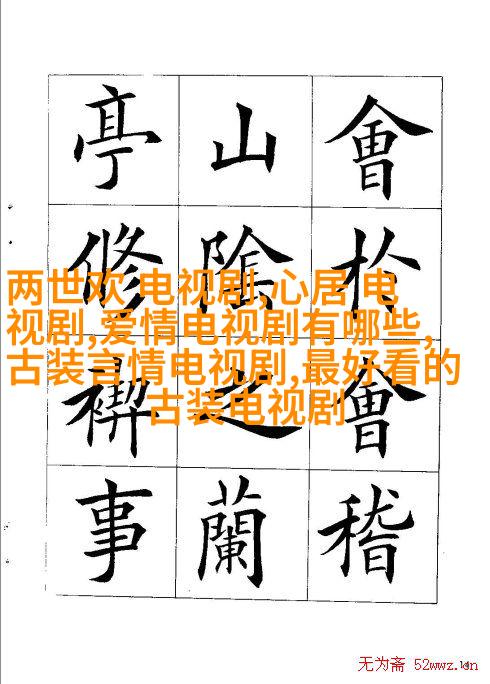 會扵會稽
山陰之蘭
亭脩禊事
两世欢 电视剧,心居 电
视剧,爱情电视剧有哪些,
古装言情电视剧,最好看的
古装电视剧
无为斋 52wwz.cn